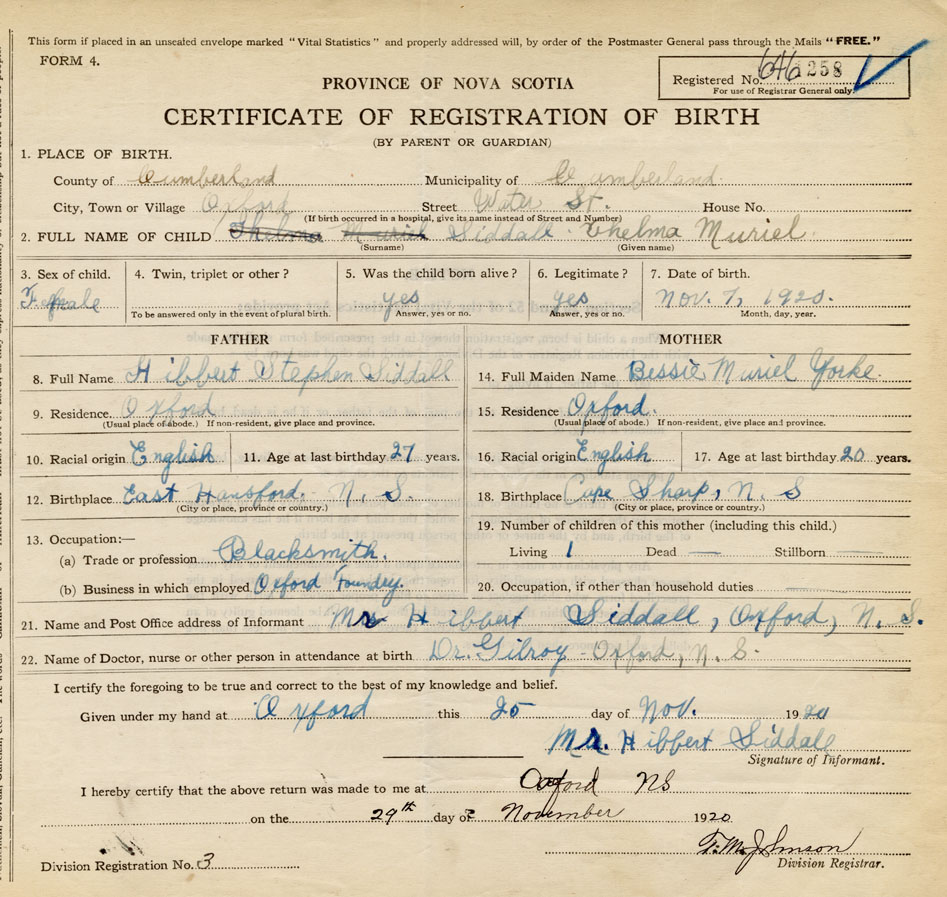 This form if placed in an unsealed envelope marked "Vital Statistics" and properly addressed will, by order of the Postmaster General pass through the Mails "FREE."
FORM 4.
Registered No. 646 258
For use of Registrar General only.
PROVINCE OF NOVA SCOTIA
CERTIFICATE OF REGISTRATION OF BIRTH
(BY PARENT OR GUARDIAN)
1. PLACE OF BIRTH.
County of Cumberland Municipality of Cumberland
City, Town or Village Oxford Street Water St. House No.
(If birth occurred in a hospital, give its name instead of Street and Number)
2. FULL NAME OF CHILD Thelma Muriel Siddall Thelma Muriel
(Surname) (Given name)
3. Sex of child. 4. Twin, triplet or other? 5. Was the child born alive? 6. Legitimate? 7. Date of birth.
Female yes yes Nov. 7, 1920.
To be answered only in the event of plural birth. Answer, yes or no. Answer, yes or no. Month, day, year.
FATHER MOTHER
8. Full Name Hibbert Stephen Siddall 14. Full Maiden Name Bessie Muriel Yorke
9. Residence. Oxford 15. Residence Oxford.
(Usual place of abode.) If non-resident, give place and province. (Usual place of abode.) If non-resident, give place and province.
10. Racial origin English 11. Age at last birthday 27 years. 16. Racial origin English 17. Age at last birthday 20 years.
12. Birthplace East Hansford. N. S. 18. Birthplace Cape Sharp, N. S
(City or place, province or country.) (City or place, province or country.)
13. Occupation:— 19. Number of children of this mother (including this child.)
(a) Trade or profession Blacksmith. Living 1 Dead — Stillborn —
(b) Business in which employed Oxford Foundry. 20. Occupation, if other than household duties
21. Name and Post Office address of Informant Mrs Hibbert Siddall, Oxford, N. S.
22. Name of Doctor, nurse or other person in attendance at birth Dr. Gilroy - Oxford, N. S.
I certify the foregoing to be true and correct to the best of my knowledge and belief.
Given under my hand at Oxford this 25 day of Nov. 1920
Hibbert Siddall
Signature of Informant.
I hereby certify that the above return was made to me at Oxford NS
on the 29th day of November 1920.
Johnson
Division Registration No. 3 Division Registrar.